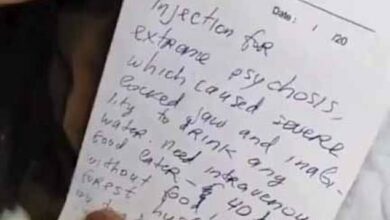 Date: / /20
injection for
extreme psychosis,
which caused severe
locked jaw and inabi-
lity to drink any
water. Need intravenous
food later - 40
without food
forest